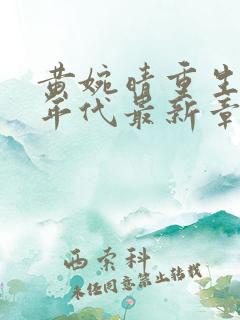 黄婉晴重生
年代最新章
西索科
未经同意禁止转载